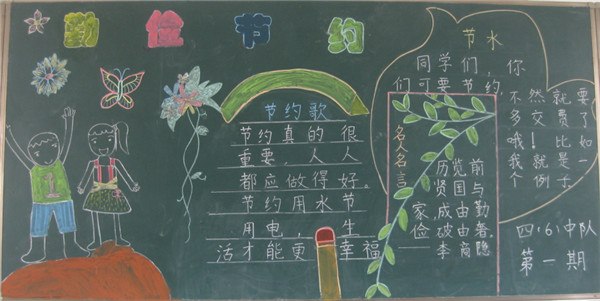 勤俭节约
节约歌
节约真的很
重要，人人
都应做得好。
节约用水节
用电，一生
活才能更幸福
名人名言
历览前
贤国与
家成由勤
俭破由奢。
——李商隐
节水
同学们，你
们可要节约
不然就要
多交费了
哦！比如
我就是一
个例子
四（6）中队
第一期